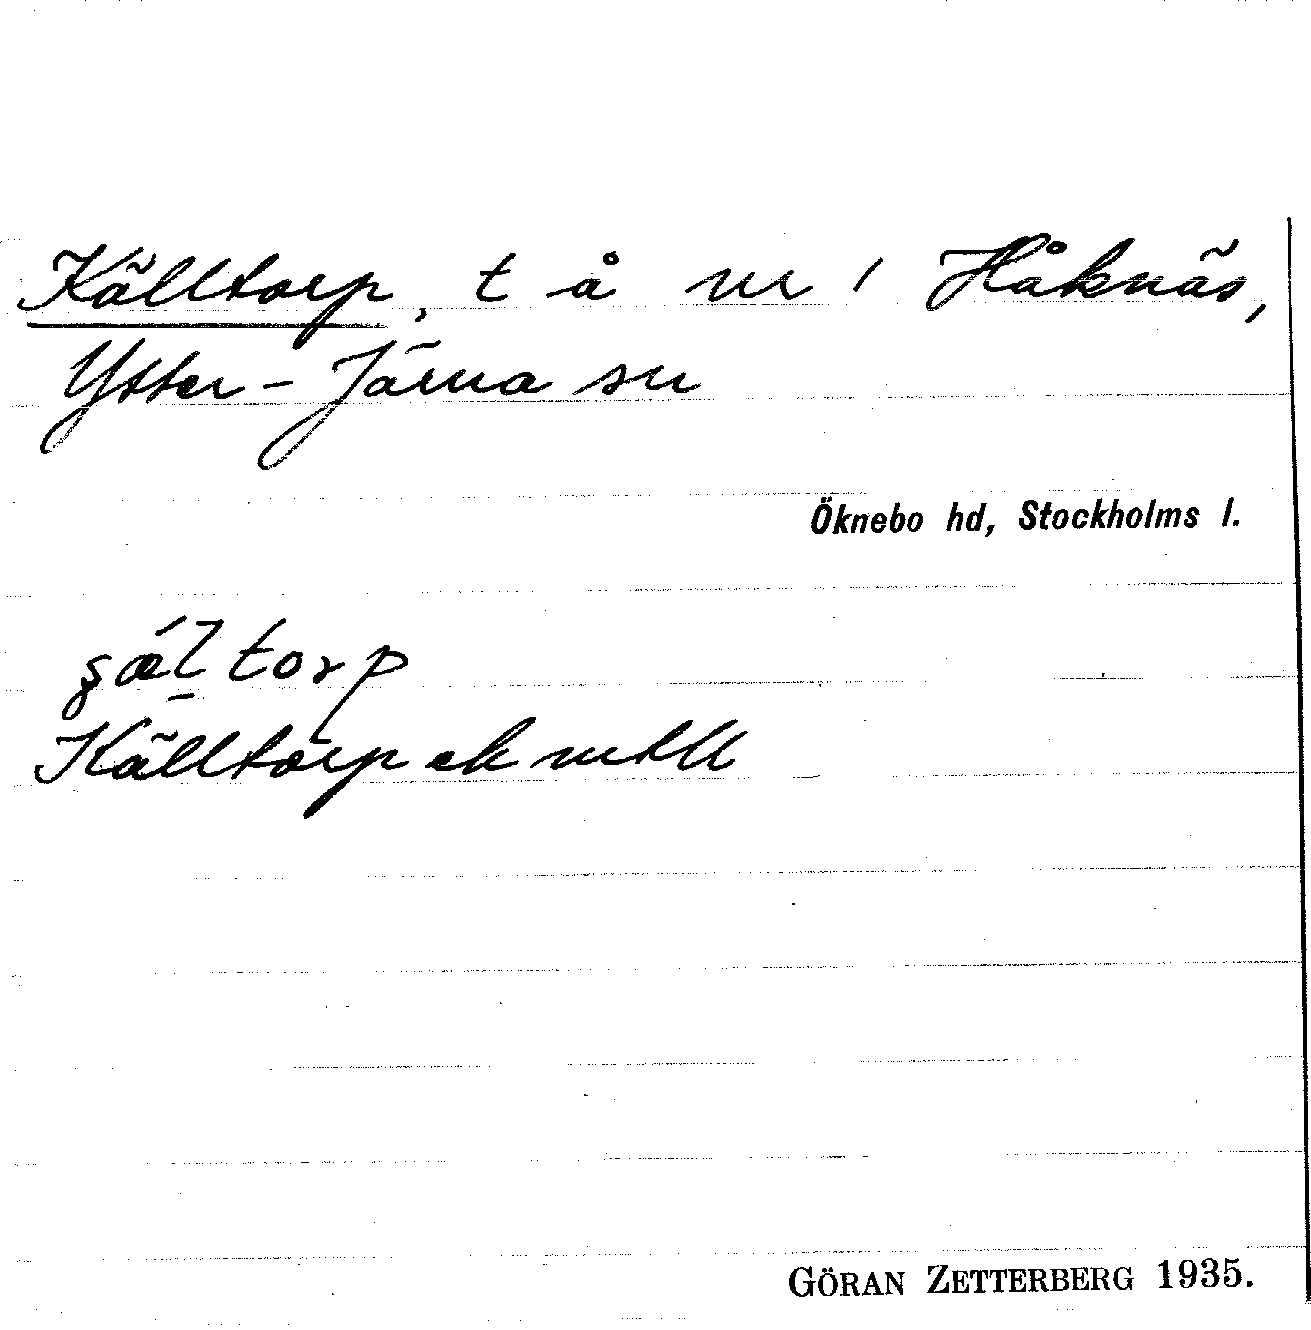 Källtorp, t å nr 1 Håknäs,
Ytter-Järna sn
Öknebo hd, Stockholms l.
torp
Källtorp ek
GÖRAN ZETTERBERG 1935.